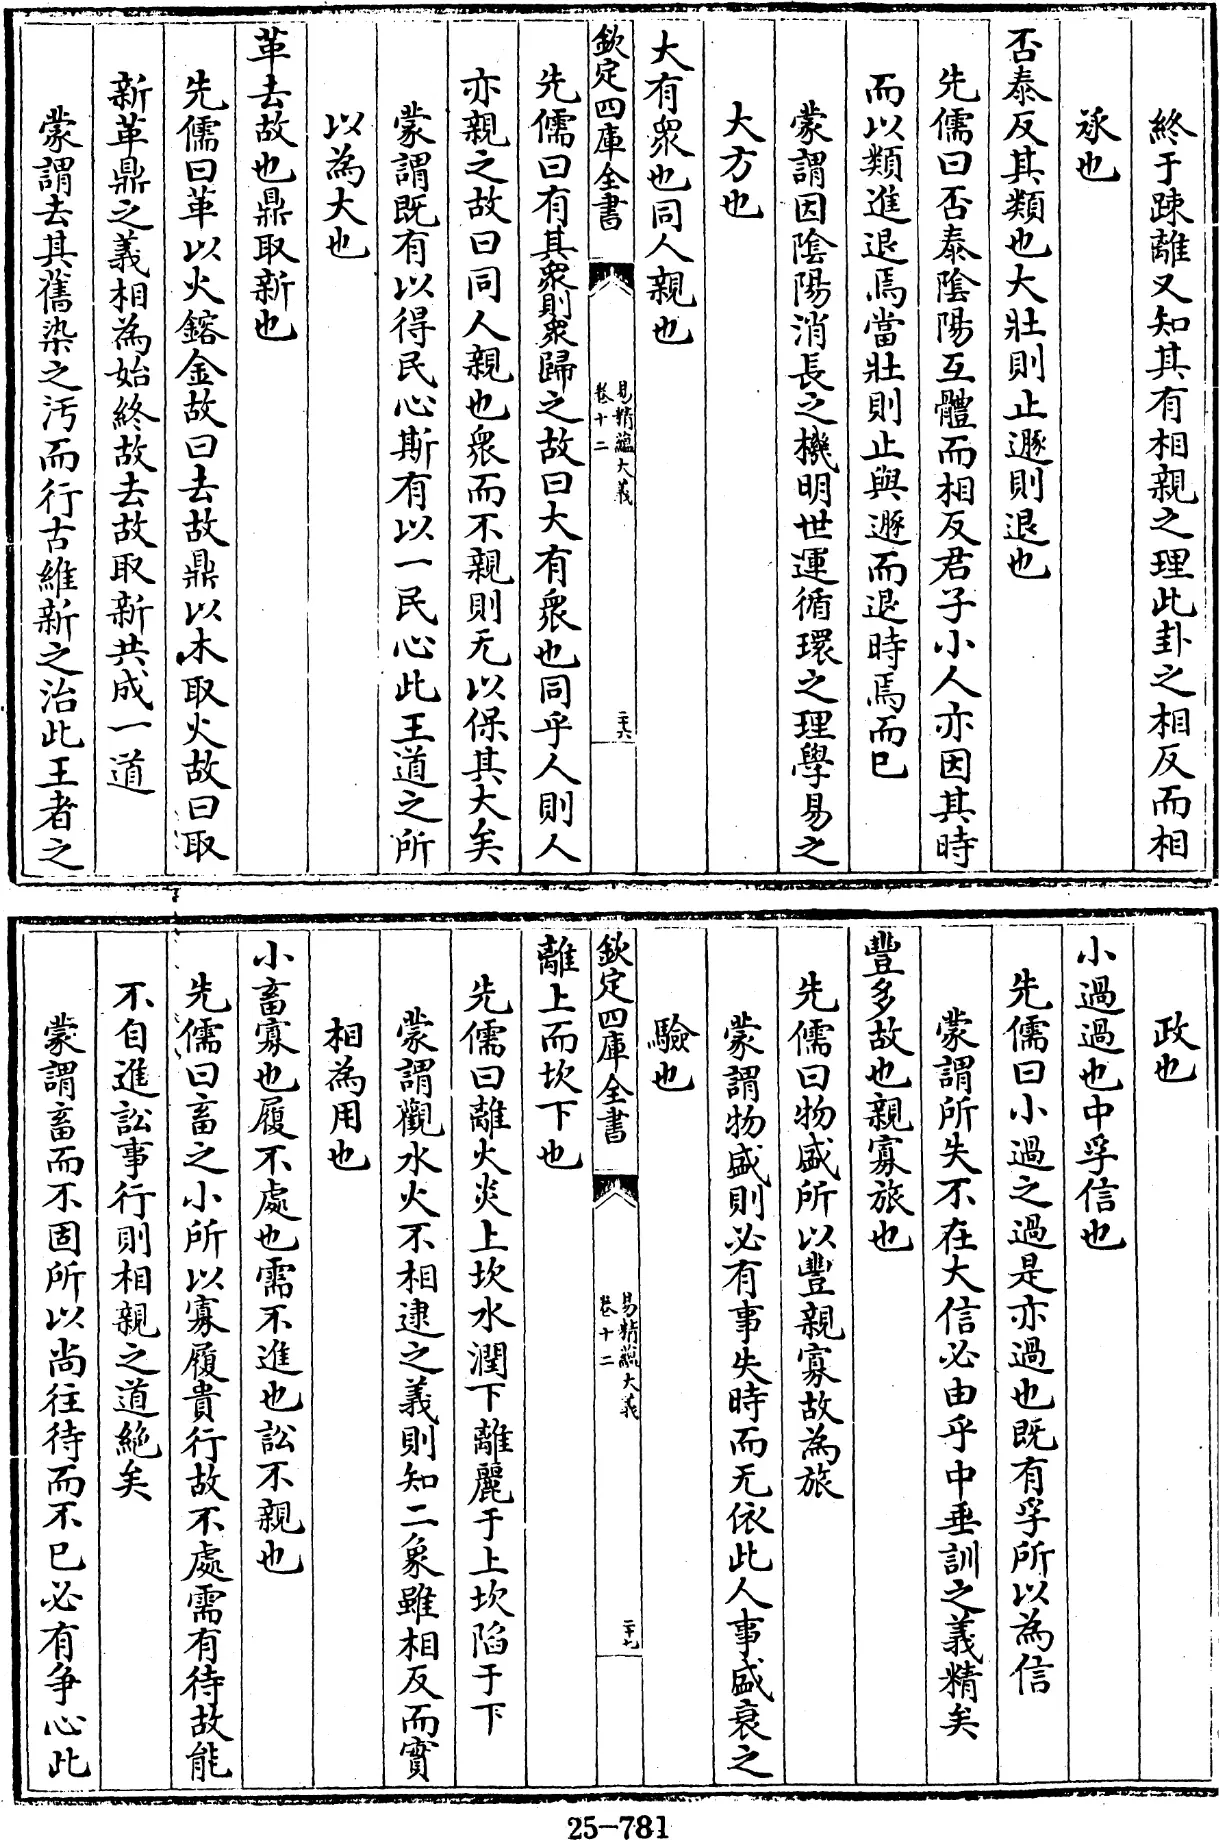 終于踈離又知其有相親之理此卦之相反而相
承也
否泰反其類也大壯則止遯則退也
先儒曰否泰陰陽互體而相反君子小人亦因其時
而以類進退焉當壯則止與遯而退時焉而已
蒙謂因陰陽消長之機明世運循環之理學易之
大方也
大有衆也同人親也
欽定四庫全書
易精蘊大義
卷十二
二十六
先儒曰有其衆則衆歸之故曰大有衆也同乎人則人
亦親之故曰同人親也衆而不親則无以保其大矣
蒙謂既有以得民心斯有以一民心此王道之所
以為大也
革去故也鼎取新也
先儒曰革以火鎔金故曰去故鼎以木取火故曰取
新革鼎之義相為始終故去故取新共成一道
蒙謂去其舊染之汚而行古維新之治此王者之
政也
小過過也中孚信也
先儒曰小過之過是亦過也既有孚所以為信
蒙謂所失不在大信必由乎中垂訓之義精矣
豐多故也親寡旅也
先儒曰物盛所以豐親寡故為旅
蒙謂物盛則必有事失時而无依此人事盛衰之
驗也
欽定四庫全書
易精蘊大義
卷十二
二十七
離上而坎下也
先儒曰離火炎上坎水潤下離麗于上坎陷于下
蒙謂觀水火不相逮之義則知二象雖相反而實
相為用也
小畜寡也履不處也需不進也訟不親也
先儒曰畜之小所以寡履貴行故不處需有待故能
不自進訟事行則相親之道絶矣
蒙謂畜而不固所以尚往待而不已必有争心此
25-781